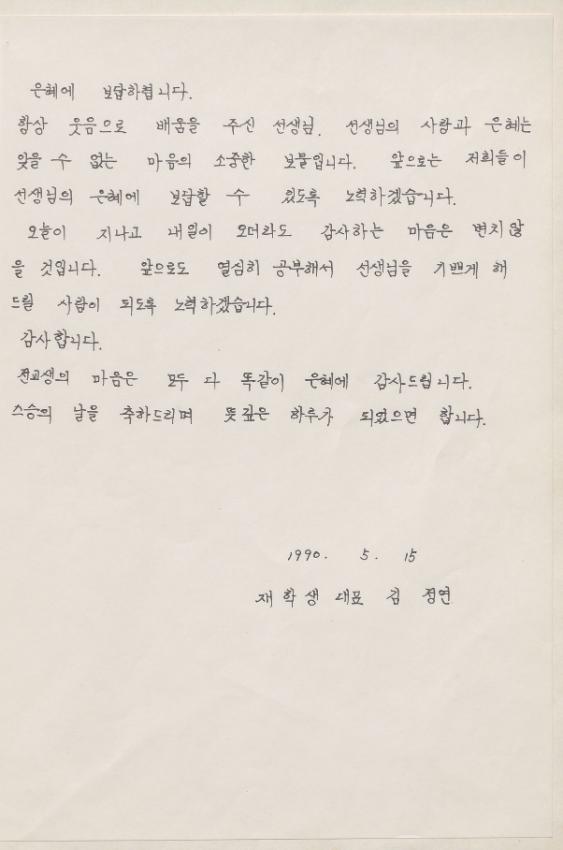 은혜에 보답하렵니다.
항상 웃음으로 배움을 주신 선생님. 선생님의 사랑과 은혜는
잊을 수 없는 마음의 소중한 보물입니다. 앞으로는 저희들이
선생님의 은혜에 보답할 수 있도록 노력하겠습니다.
오늘이 지나고 내일이 오더라도 감사하는 마음은 변치않
을 것입니다. 앞으로도 열심히 공부해서 선생님을 기쁘게 해
드릴 사람이 되도록 노력하겠습니다.
감사합니다.
전교생의 마음은 모두 다 똑같이 은혜에 감사드립니다.
스승의 날을 축하드리며 뜻깊은 하루가 되었으면 합니다.
1990. 5. 15
재학생 대표 김 정연